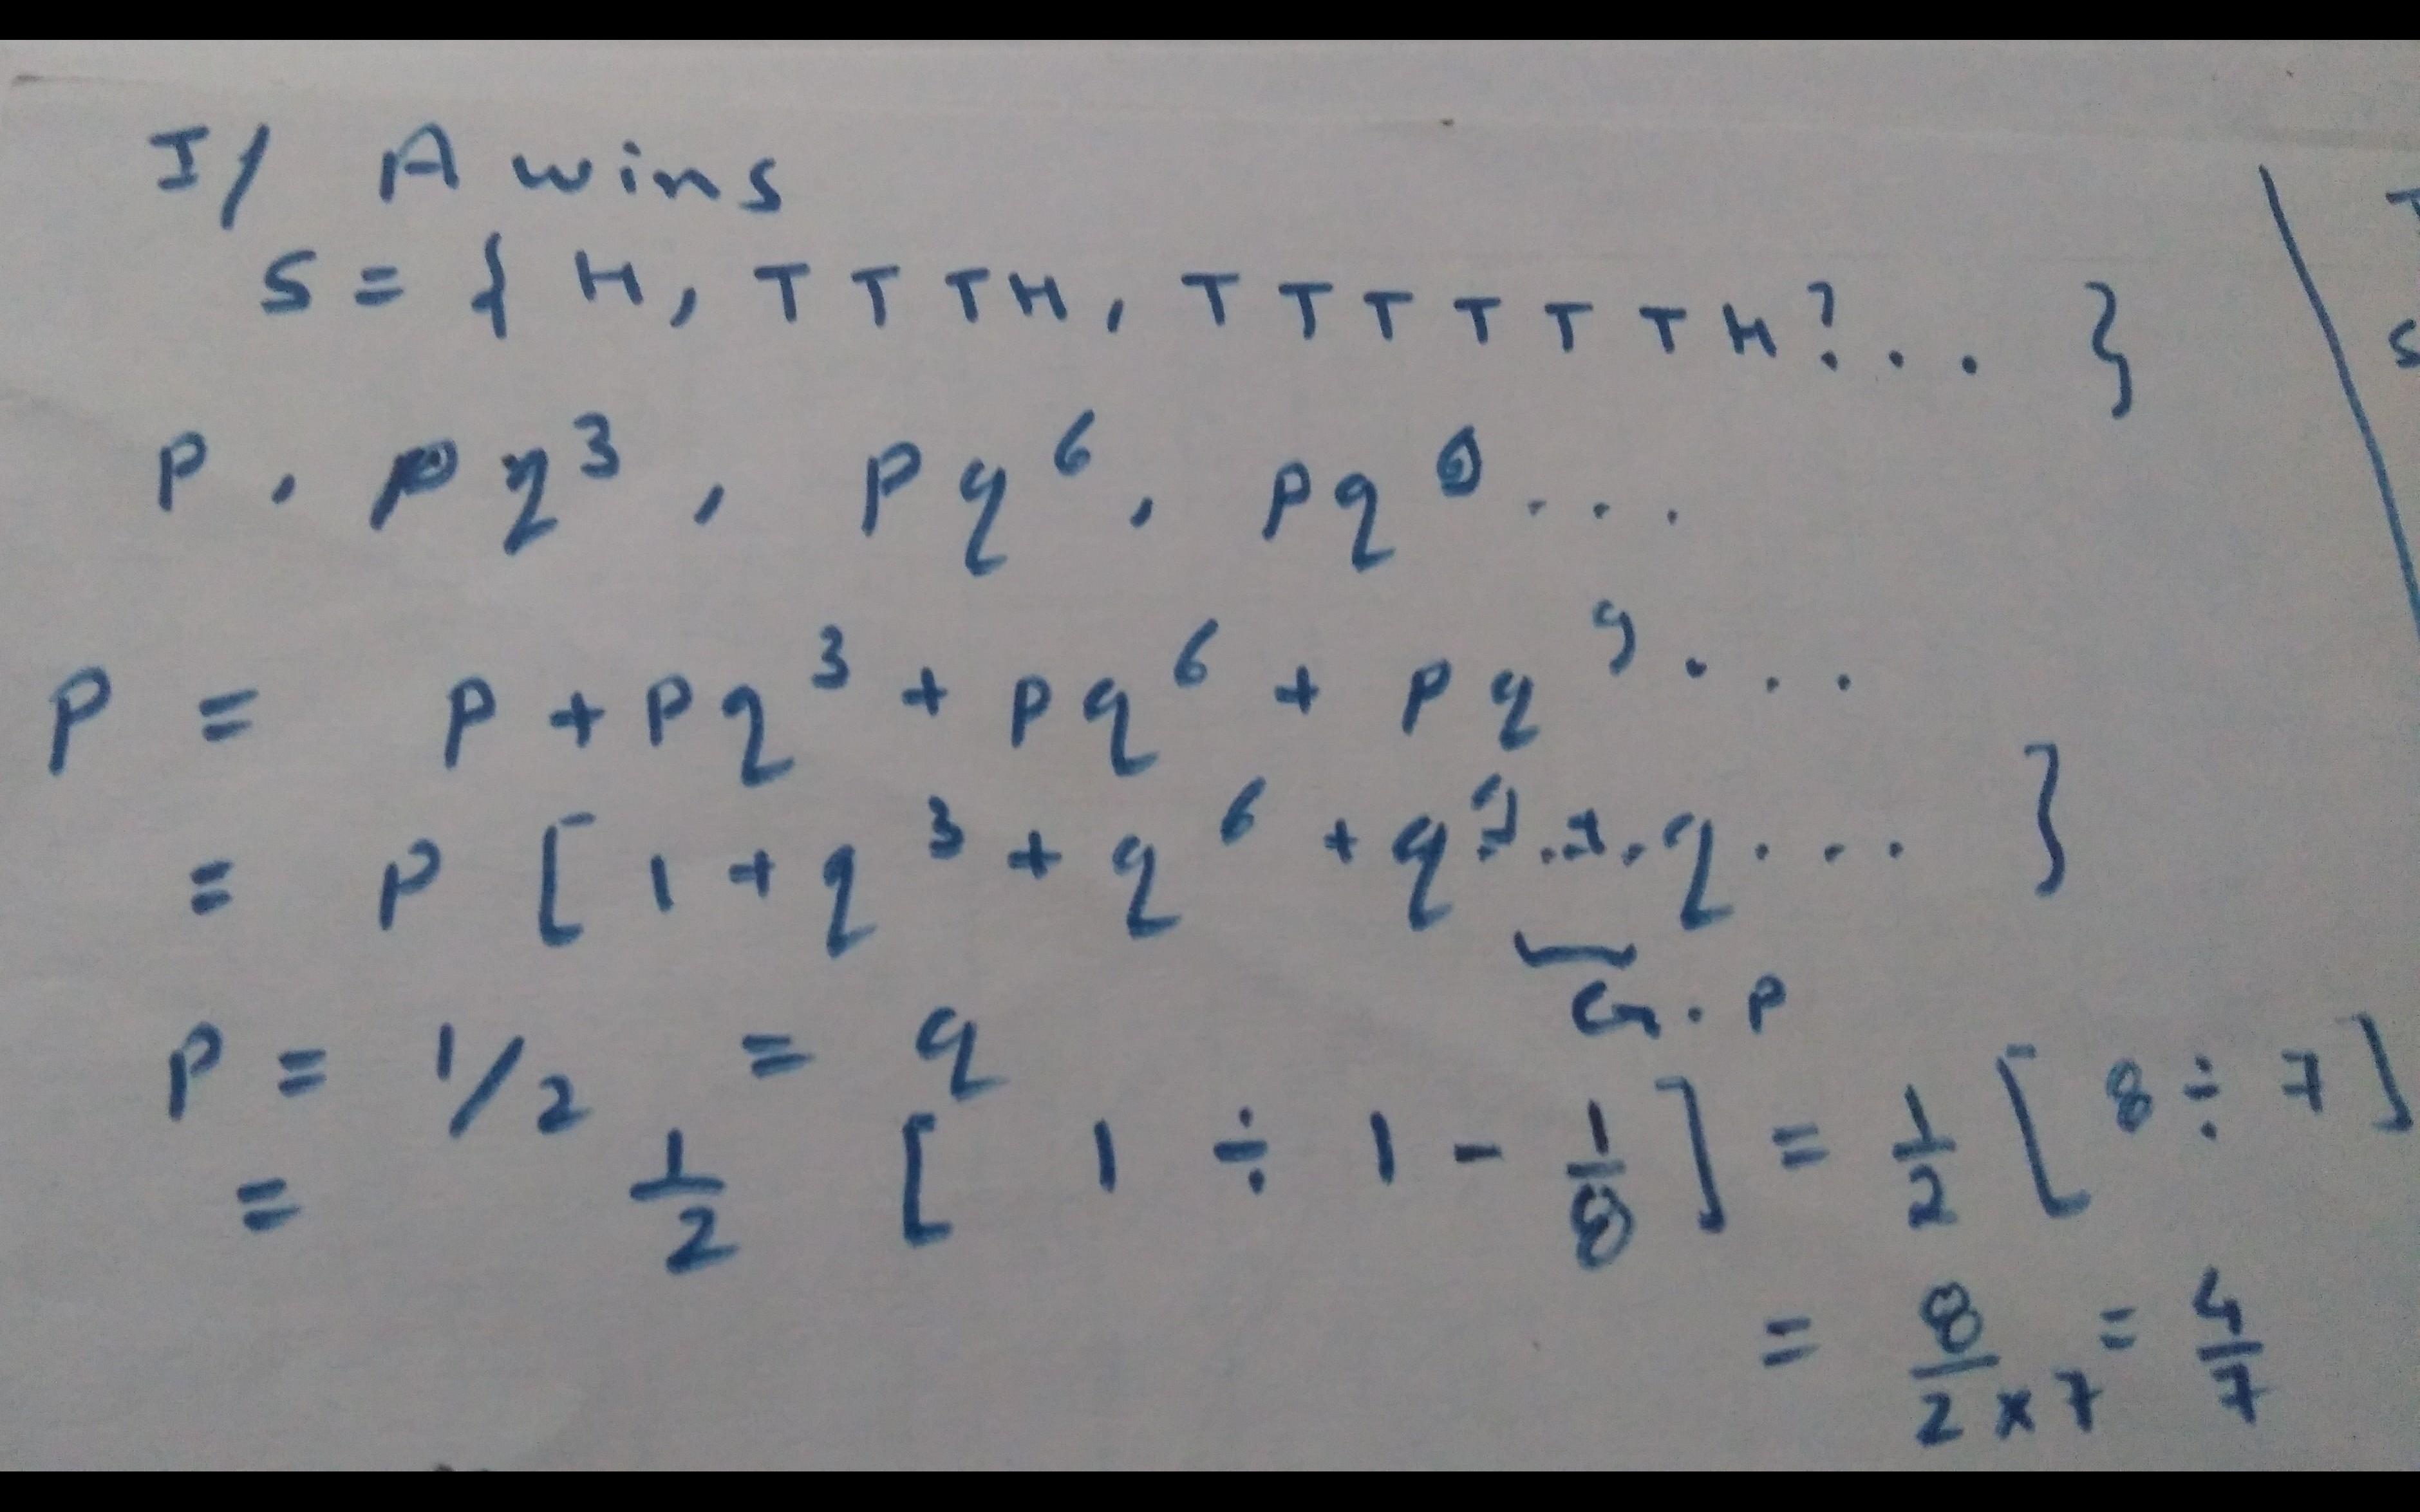 I/ A wins
S = { H, T T T H, T T T T T T H ? . . . }
P , p q³ , p q⁶ , p q . . .
P = P + P q³ + P q⁶ + P q⁹ . . .
= P [ 1 + q³ + q⁶ + q⁹ . . . q . . . }
G.P
P = 1/2 = q
= 1/2 [ 1 ÷ 1 - 1/8 ] = 1/2 [ 8 ÷ 7 ]
= 8/2 x 7 = 4/7